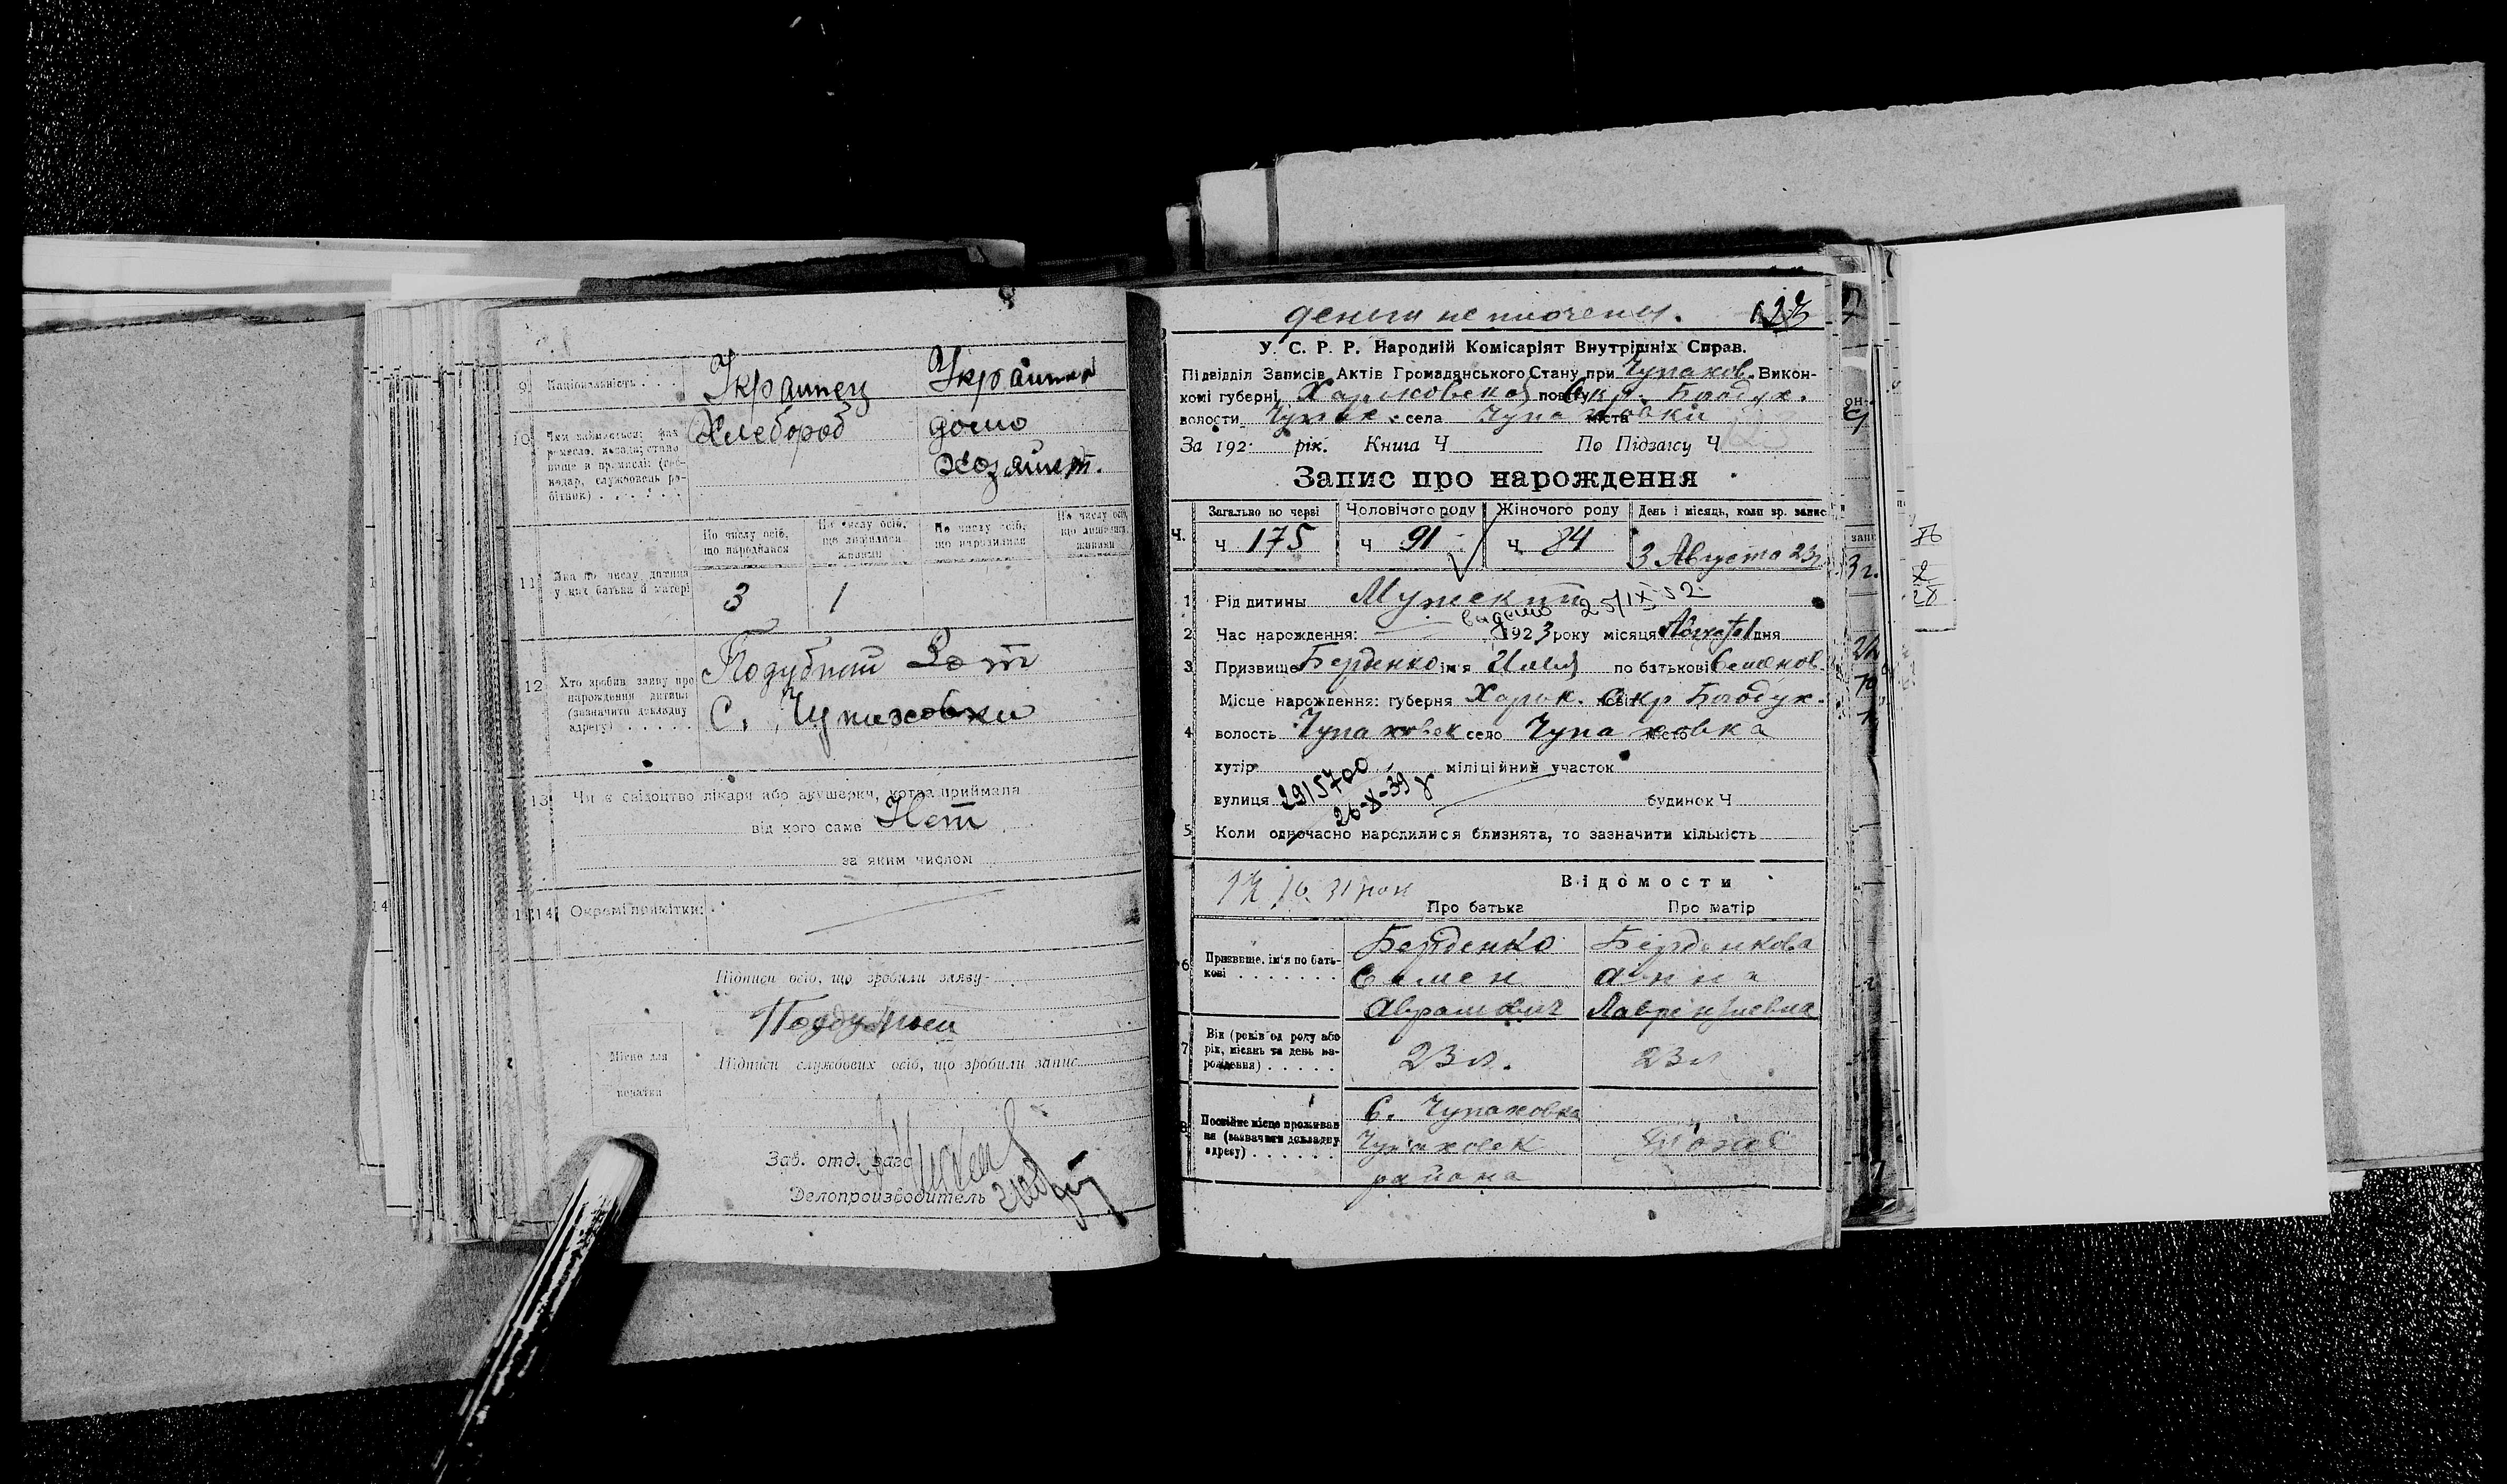 9 Національність . . . Украинец Украинка
10 Чим займається: фах Хлебороб домо
ремесло, посада; стано
вище в промислі: (гос- хозяйст.
подар, службовець ро-
бітник) . . . . . .
По числу осіб, що народилися По числу осіб, що лишилися живими По числу осіб, що народилися По числу осіб, що лишилися живими
11 Яка по числу дитина у них батька й матері 3 1
12 Хто зробив заяву про Подубный
нарождення дитини
(зазначити докладну С. Чупаховки
адресу) . . . . .
13 Чи є свідоцтво лікаря або акушерки, котра приймала
від кого саме Нет
за яким числом
14 Окремі примітки:
Підписи осіб, що зробили заяву
Місце для
печатки
Підписи службових осіб, що зробили запис
Зав. отд. загс
Делопроизводитель
деньги не плочены. 123
У. С. Р. Р. Народній Комісаріят Внутрішніх Справ.
Підвідділ Записів Актів Громадянського Стану при Чупахов. Викон-
комі губерні Харьковской повіту Окр. Богодух.
волости Чупах. села Чупаховки міста
За 192 рік. Книга Ч По Підзагсу Ч
Запис про нарождення
Загально по черзі Чоловічого роду Жіночого роду День і місяць, коли зр. запис
Ч. Ч 175 Ч 91 Ч 84 3 Августа 23г.
1 Рід дитини Мужский
видано 25/IX 52
2 Час нарождення: 1923 року місяця Августа 1 дня
3 Призвище Берденко ім'я Илья по батькові Семенов.
Місце нарождення: губерня Харьк. повіт Окр Богодух.
4 волость Чупаховск село Чупаховка місто
хутір міліційний участок
вулиця 2915700 будинок Ч
26-X-39 г
5 Коли одночасно народилися близнята, то зазначити кількість
Відомости
Про батька Про матір
6 Призвище, ім'я по бать- Берденко Берденкова
кові . . . . . . . Семен Анна
Аврамович Лаврентиевна
7 Вік (років од роду або
рік, місяць та день на- 23 л. 23 л
рождення) . . . . .
8 С. Чупаховка
Постійне місце проживан
ня (зазначити докладну Чупаховск Тоже
адресу) . . . . . .
района